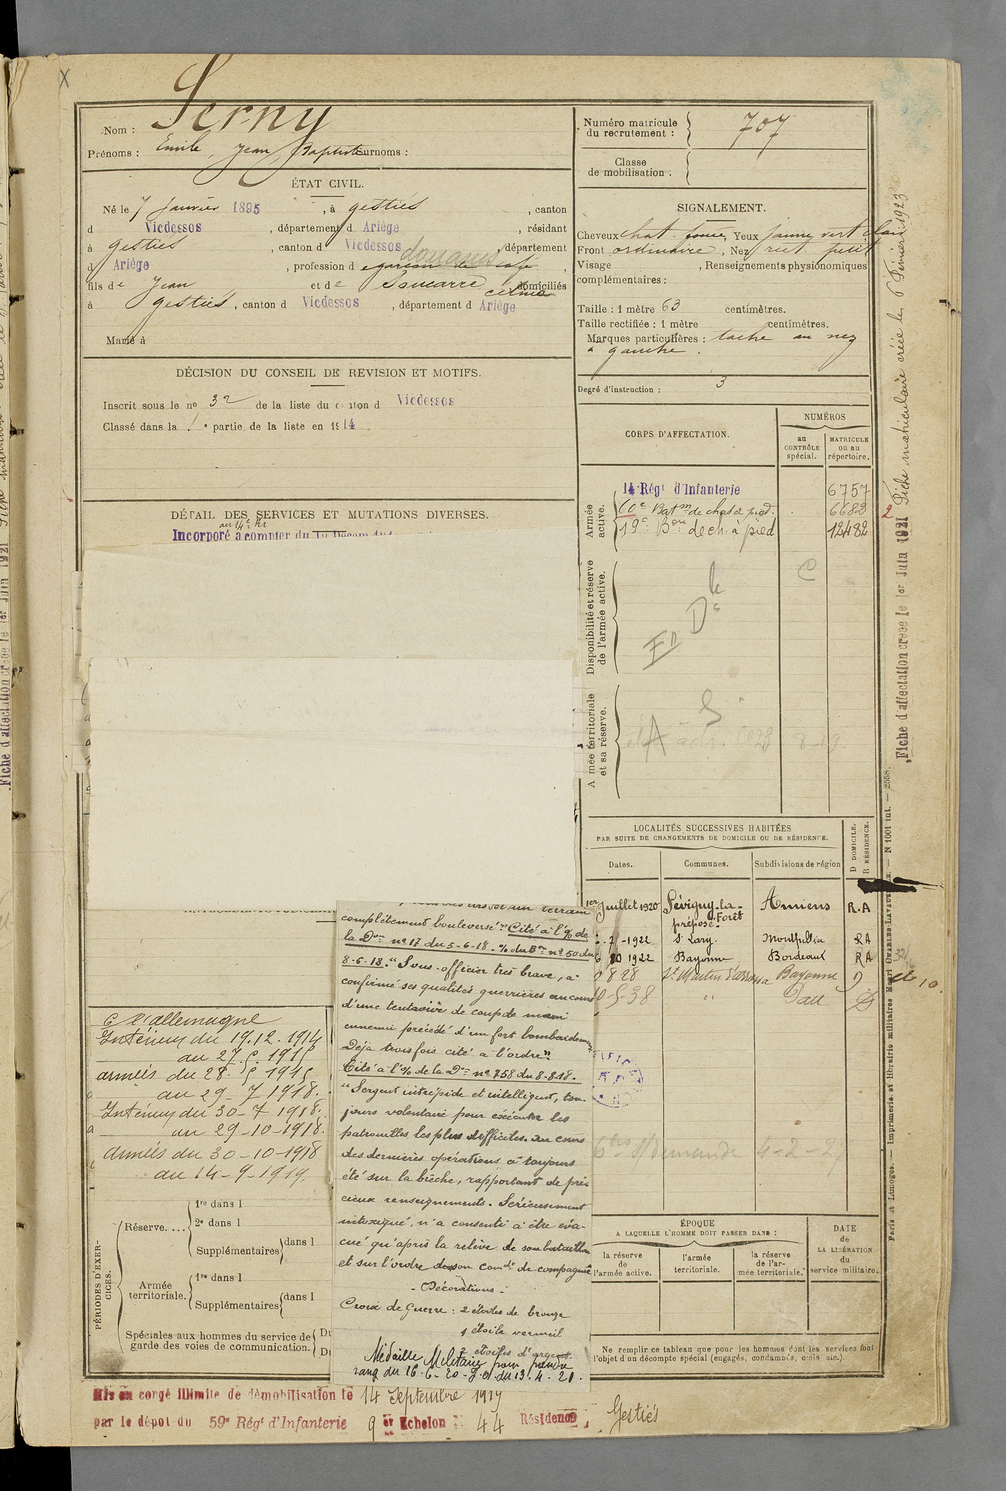 Serny
Nom :
Prénoms : Emile, Jean, Baptiste Surnoms :
ÉTAT CIVIL.
Né le 7 Janvier 1895, à gesties, canton
d Vicdessos, département d Ariège, résidant
à gesties, canton d Vicdessos, département
d Ariège, profession d garçon de café
douanes
fils de Jean et de domiciliés
à gesties, canton d Vicdessos, département d Ariège
Marié à
DÉCISION DU CONSEIL DE REVISION ET MOTIFS.
Inscrit sous le nº 32 de la liste du canton d Vicdessos
Classé dans la 1re partie de la liste en 1914
DÉTAIL DES SERVICES ET MUTATIONS DIVERSES.
au 14e RI
Incorporé à compter du
Numéro matricule
du recrutement :
707
Classe
de mobilisation :
SIGNALEMENT.
Cheveux chat. foncé, Yeux jaune vert clair
Front ordinaire, Nez rect. petit
Visage , Renseignements physionomiques
complémentaires :
Taille : 1 mètre 63 centimètres.
Taille rectifiée : 1 mètre centimètres.
Marques particulières : tache au nez
à gauche.
Degré d'instruction : 3
CORPS D'AFFECTATION.
NUMÉROS
au
CONTRÔLE
spécial.
MATRICULE
ou au
répertoire.
Armée
active.
14 Régt d'Infanterie 6757
60e Baton de chas à pied. 6682
19e Bon de ch. à pied 12482
Disponibilité et réserve
de l'armée active.
C
Armée territoriale
et sa réserve.
LOCALITÉS SUCCESSIVES HABITÉES
PAR SUITE DE CHANGEMENTS DE DOMICILE OU DE RÉSIDENCE.
Dates.
Communes.
Subdivisions de région
D DOMICILE.
R RÉSIDENCE.
1er Juillet 1920 Sévigny-la-Forêt Amiens R.A
préposé.
2-7-1922 St Lary. Montpellier RA
6 10 1922 Bayonne Bordeaux RA
8 28 St Martin d'Arrossa Bayonne D
5-38 " Pau D
s/demande 4-2-2
complètement bouleversé". Cité à l'% de
la Don nº 17 du 5-6-18. % du Bon nº 50 du
8-6-18. "Sous-officier très brave, a
confirmé ses qualités guerrières au cours
d'une tentative de coup de main
ennemie précédé d'un fort bombardement
Déjà trois fois cité à l'ordre".
Cité à l'% de la Don nº 758 du 8.8.18.
"Sergent intrépide et intelligent, tou-
jours volontaire pour exécuter les
patrouilles les plus difficiles. Au cours
des dernières opérations a toujours
été sur la brèche, rapportant de pré-
cieux renseignements. Sérieusement
intoxiqué, n'a consenti à être éva-
cué qu'après la relève de son bataillon
et sur l'ordre de son comdt de compagnie
- Décorations -
Croix de Guerre : 2 étoiles de bronze
1 étoile vermeil
étoiles d'argent.
Médaille Militaire pour prendre
rang du 16-6-20 - J.O. du 13.4.21.
C. l'allemagne
Intérieur du 19.12.1914
au 27.5.1915
armées du 28.5.1915
au 29-7 1918.
Intérieur du 30-7 1918.
au 29-10-1918.
armées du 30-10-1918
au 14-9-1919.
PÉRIODES D'EXER-
CICES.
Réserve....
1re dans l
2e dans l
Supplémentaires dans l
Armée
territoriale.
1re dans l
Supplémentaires dans l
Spéciales aux hommes du service de
garde des voies de communication.
Du
Du
ÉPOQUE
A LAQUELLE L'HOMME DOIT PASSER DANS :
la réserve
de
l'armée active.
l'armée
territoriale.
la réserve
de l'ar-
mée territoriale.
DATE
de
LA LIBÉRATION
du
service militaire.
Ne remplir ce tableau que pour les hommes dont les services font
l'objet d'un décompte spécial (engagés, condamnés, omis etc.).
Mis en congé illimité de démobilisation le 14 Septembre 1919
par le dépot du 59e Régt d'Infanterie 9 Echelon Nº 44 Résidence Gestiès
Fiche d'affectation créée le 1er Juin 1921
Fiche matriculaire créée le 6 Février 1923
Paris et Limoges. — Imprimerie et librairie militaires Henri CHARLES-LAVAUZELLE. — N 1001 int. — 2558.
Fiche d'affectation créée le 1er Juin 1921